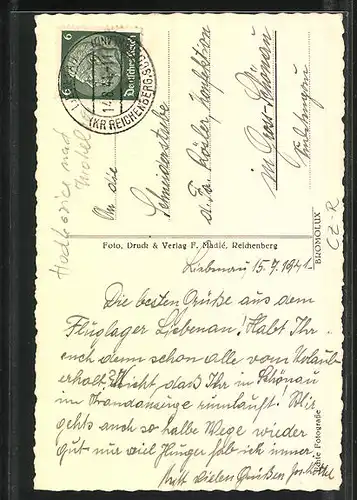 6 6
Deutsches Reich
(KR REICHENBERG, SUD
Hodkovice nad
An die
Schneiderstube
d. Fa. Rösler, Konfektion
in Gross-Schönau
Sudetengau
BROMOLUX
CZ-R
Foto, Druck & Verlag F. Madlé, Reichenberg
Liebenau, 15.7.1941.
Die besten Grüße aus dem
Fluglager Liebenau! Habt Ihr
euch denn schon alle vom Urlaub
erholt? Nicht daß Ihr in Schönau
im rumläuft! Wir
gehts auch so halbe Wege wieder
gut nur viel Hunger hab ich immer.
Mit vielen Grüßen
Echte Fotografie